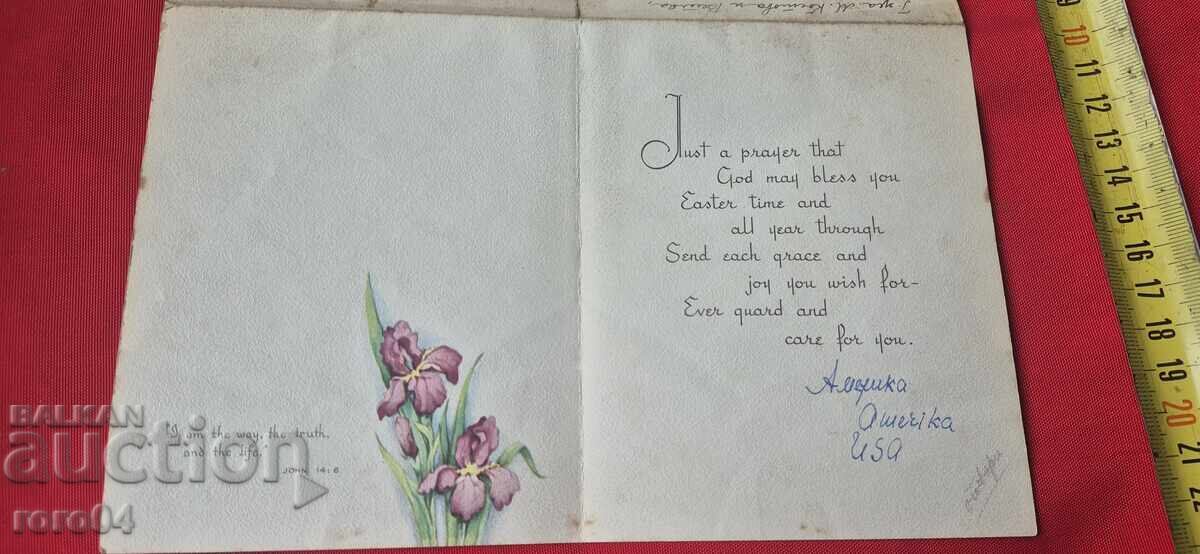 Just a prayer that
God may bless you
Easter time and
all year through
Send each grace and
joy you wish for-
Ever guard and
care for you.
Америка
Amerika
USA
"I am the way, the truth,
and the life."
JOHN 14:6
BALKAN
auction
roro04
9
10
11
12
13
14
15
16
17
18
19
20
21
22